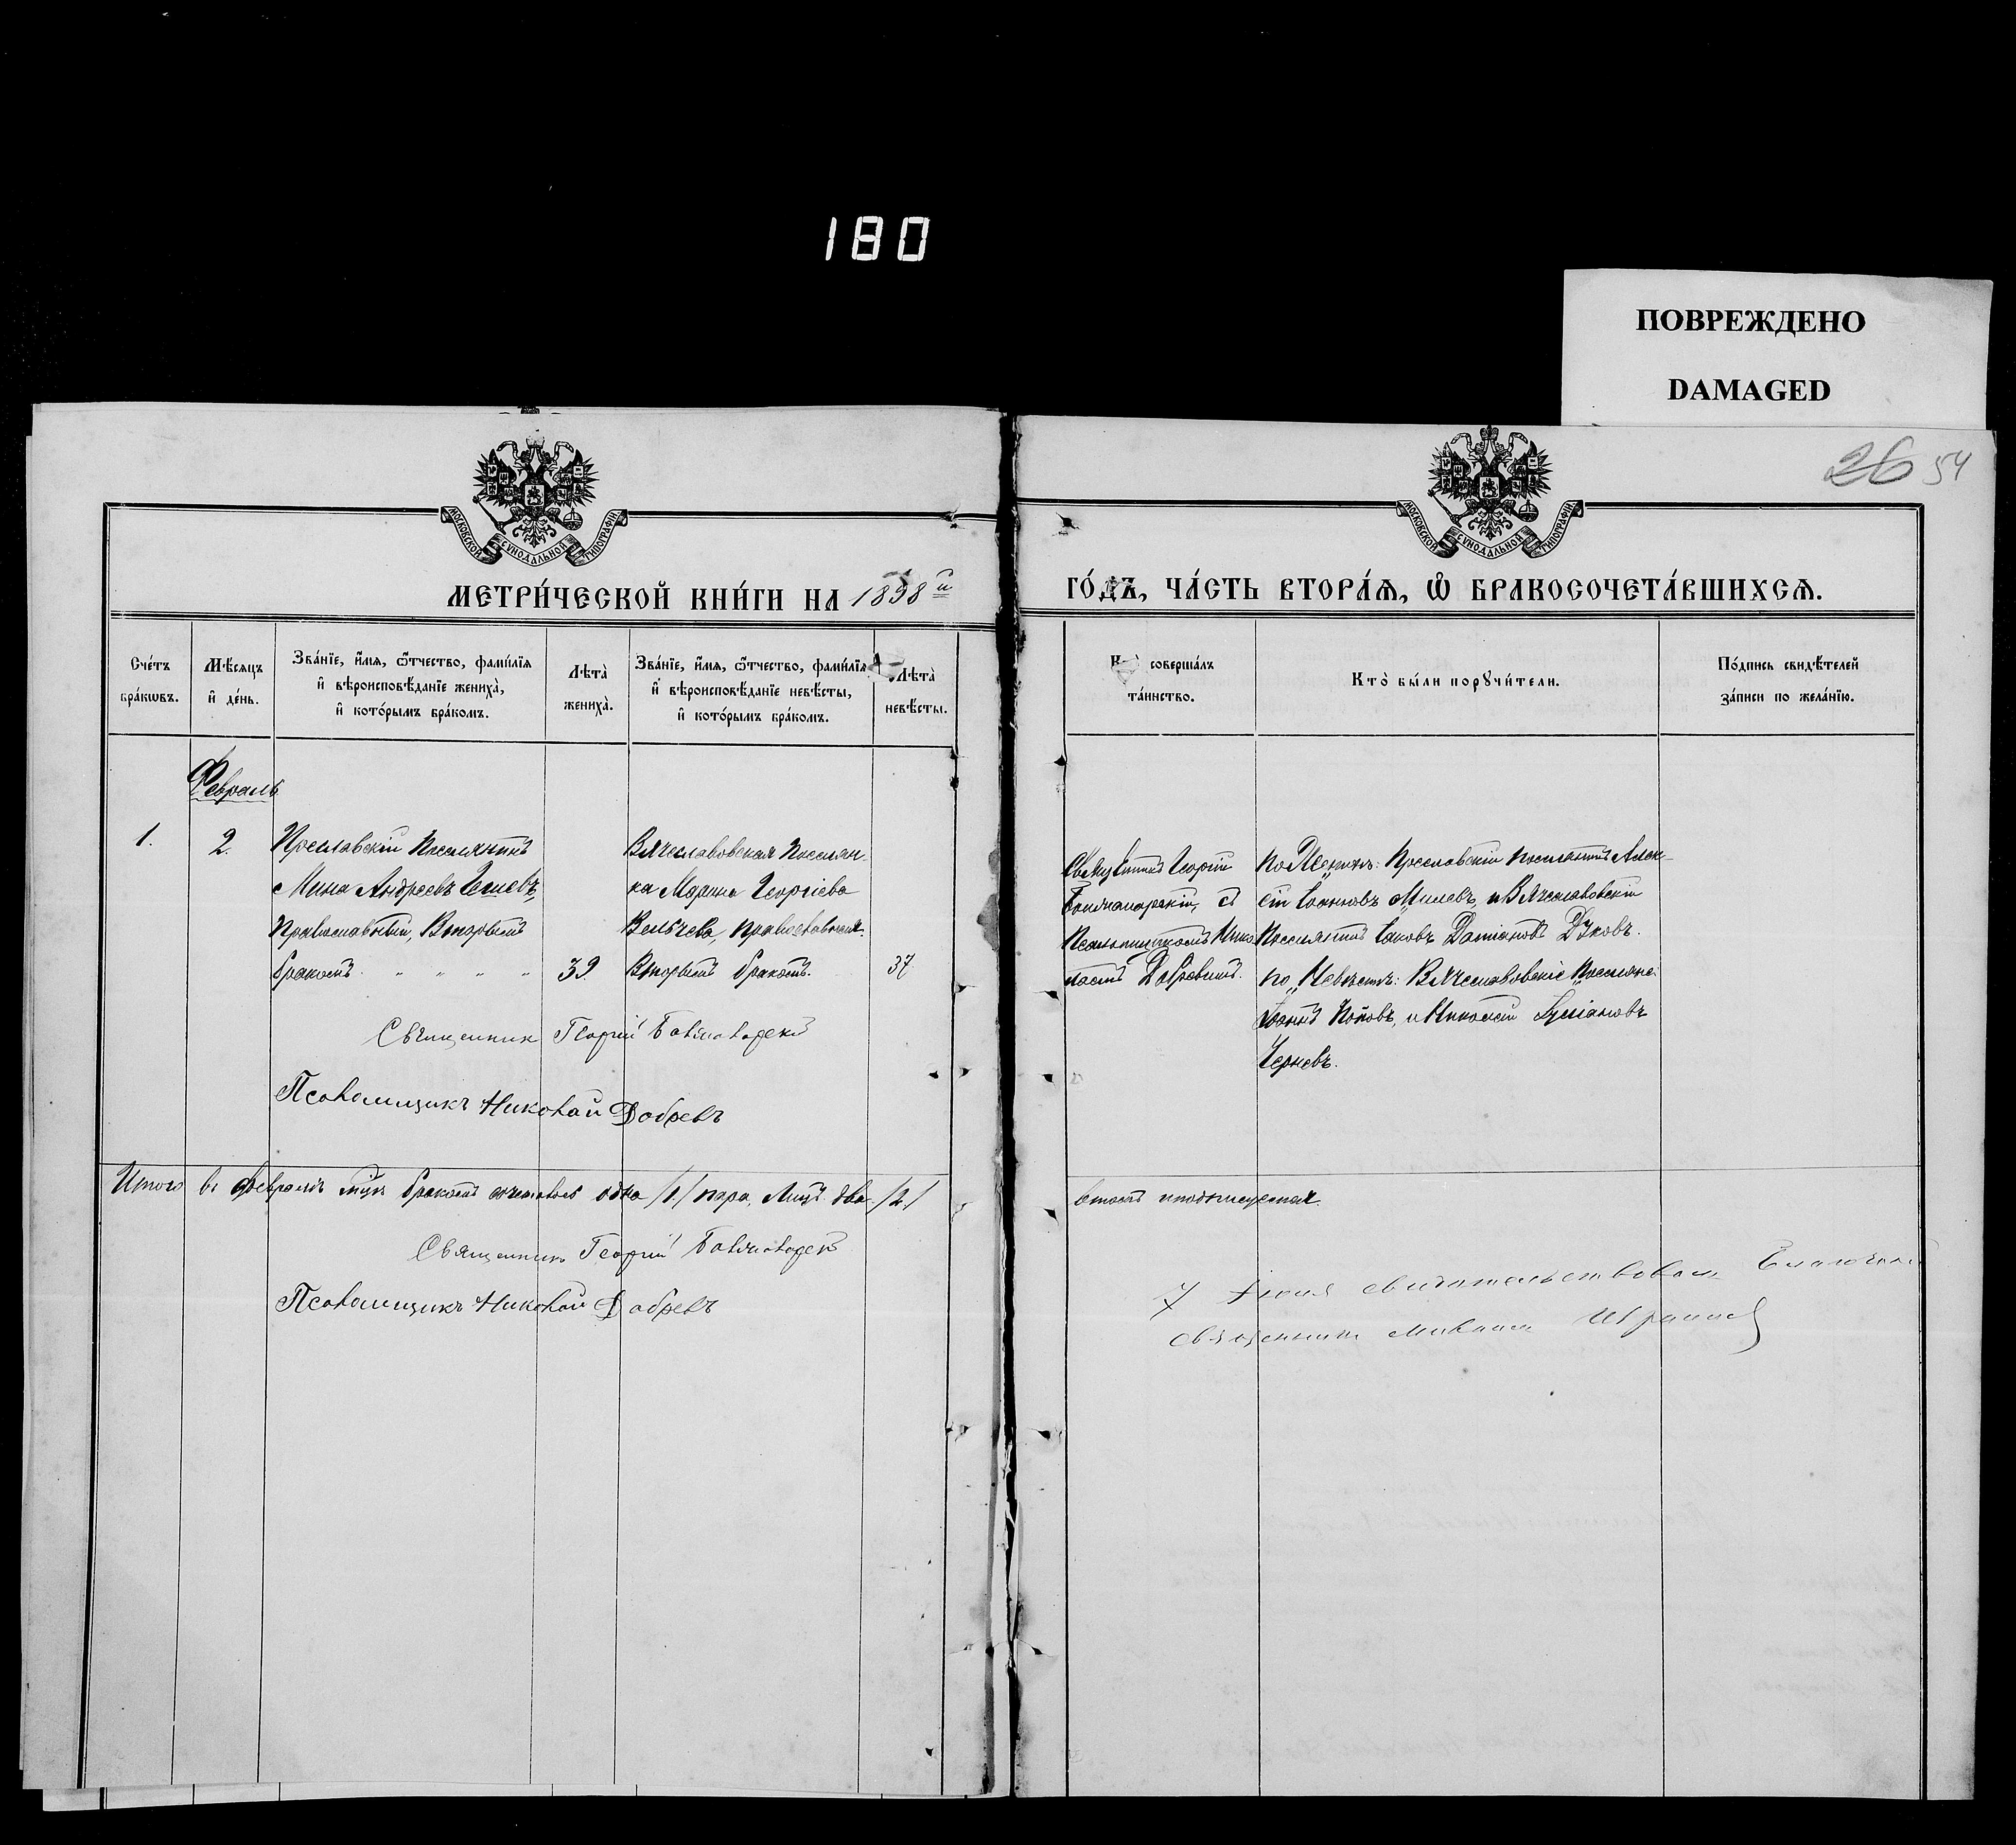 180
ПОВРЕЖДЕНО
DAMAGED
26 54
МОСКОВСКОЙ СѴНОДАЛЬНОЙ ТИПОГРАФІИ.
МОСКОВСКОЙ СѴНОДАЛЬНОЙ ТИПОГРАФІИ.
МЕТРИ́ЧЕСКОЙ КНИ́ГИ НА 1898 й
ГО́ДЪ, ЧА́СТЬ ВТОРА́Ѧ, Ѽ БРАКОСОЧЕТА́ВШИХСѦ.
Сче́тъ бра́кѡвъ.
Мѣ́сяцъ и҆ де́нь.
Зва́нїе, и҆́мѧ, ѻ҆́тчество, фами́лїѧ и҆ вѣроисповѣ́данїе жениха̀, и҆ кото́рымъ бра́комъ.
Лѣта̀ жениха̀.
Зва́нїе, и҆́мѧ, ѻ҆́тчество, фами́лїѧ и҆ вѣроисповѣ́данїе невѣ́сты, и҆ кото́рымъ бра́комъ.
Лѣта̀ невѣ́сты.
соверша́лъ та́инство.
Кто̀ бы́ли порꙋчи́тели.
По́дпись свидѣ́телей за́писи по жела́нїю.
Февраль
1.
2.
Преславскій Поселянинъ
Мина Андреевъ
Православный, Вторымъ
бракомъ " " " "
39
Вячеславовская поселян-
ка Марина Георгіева
Вельчева, православная.
Вторымъ бракомъ.
37
Священникъ Георгій
съ
Псаломщикомъ Нико
лаемъ Добревымъ.
По Женихѣ: Преславскій поселянинъ Алек-
сій Іоанновъ Милевъ, и Вячеславовскій
Поселянинъ Іаковъ Даміановъ Дуковъ.
по Невѣстѣ: Вячеславовскіе поселяне:
Іоаннъ Поповъ, и Николай
Черневъ.
Священник Георгій
Псаломщикъ Николай Добревъ
Итого въ февралѣ м҃цѣ бракомъ сочеталось одна /1./ пара, Лицъ два /2./
въ томъ и подписуемся.
Священникъ Георгій
Псаломщикъ Николай Добревъ
7 Іюня свидѣтельствовалъ Благочин
священникъ Михаилъ